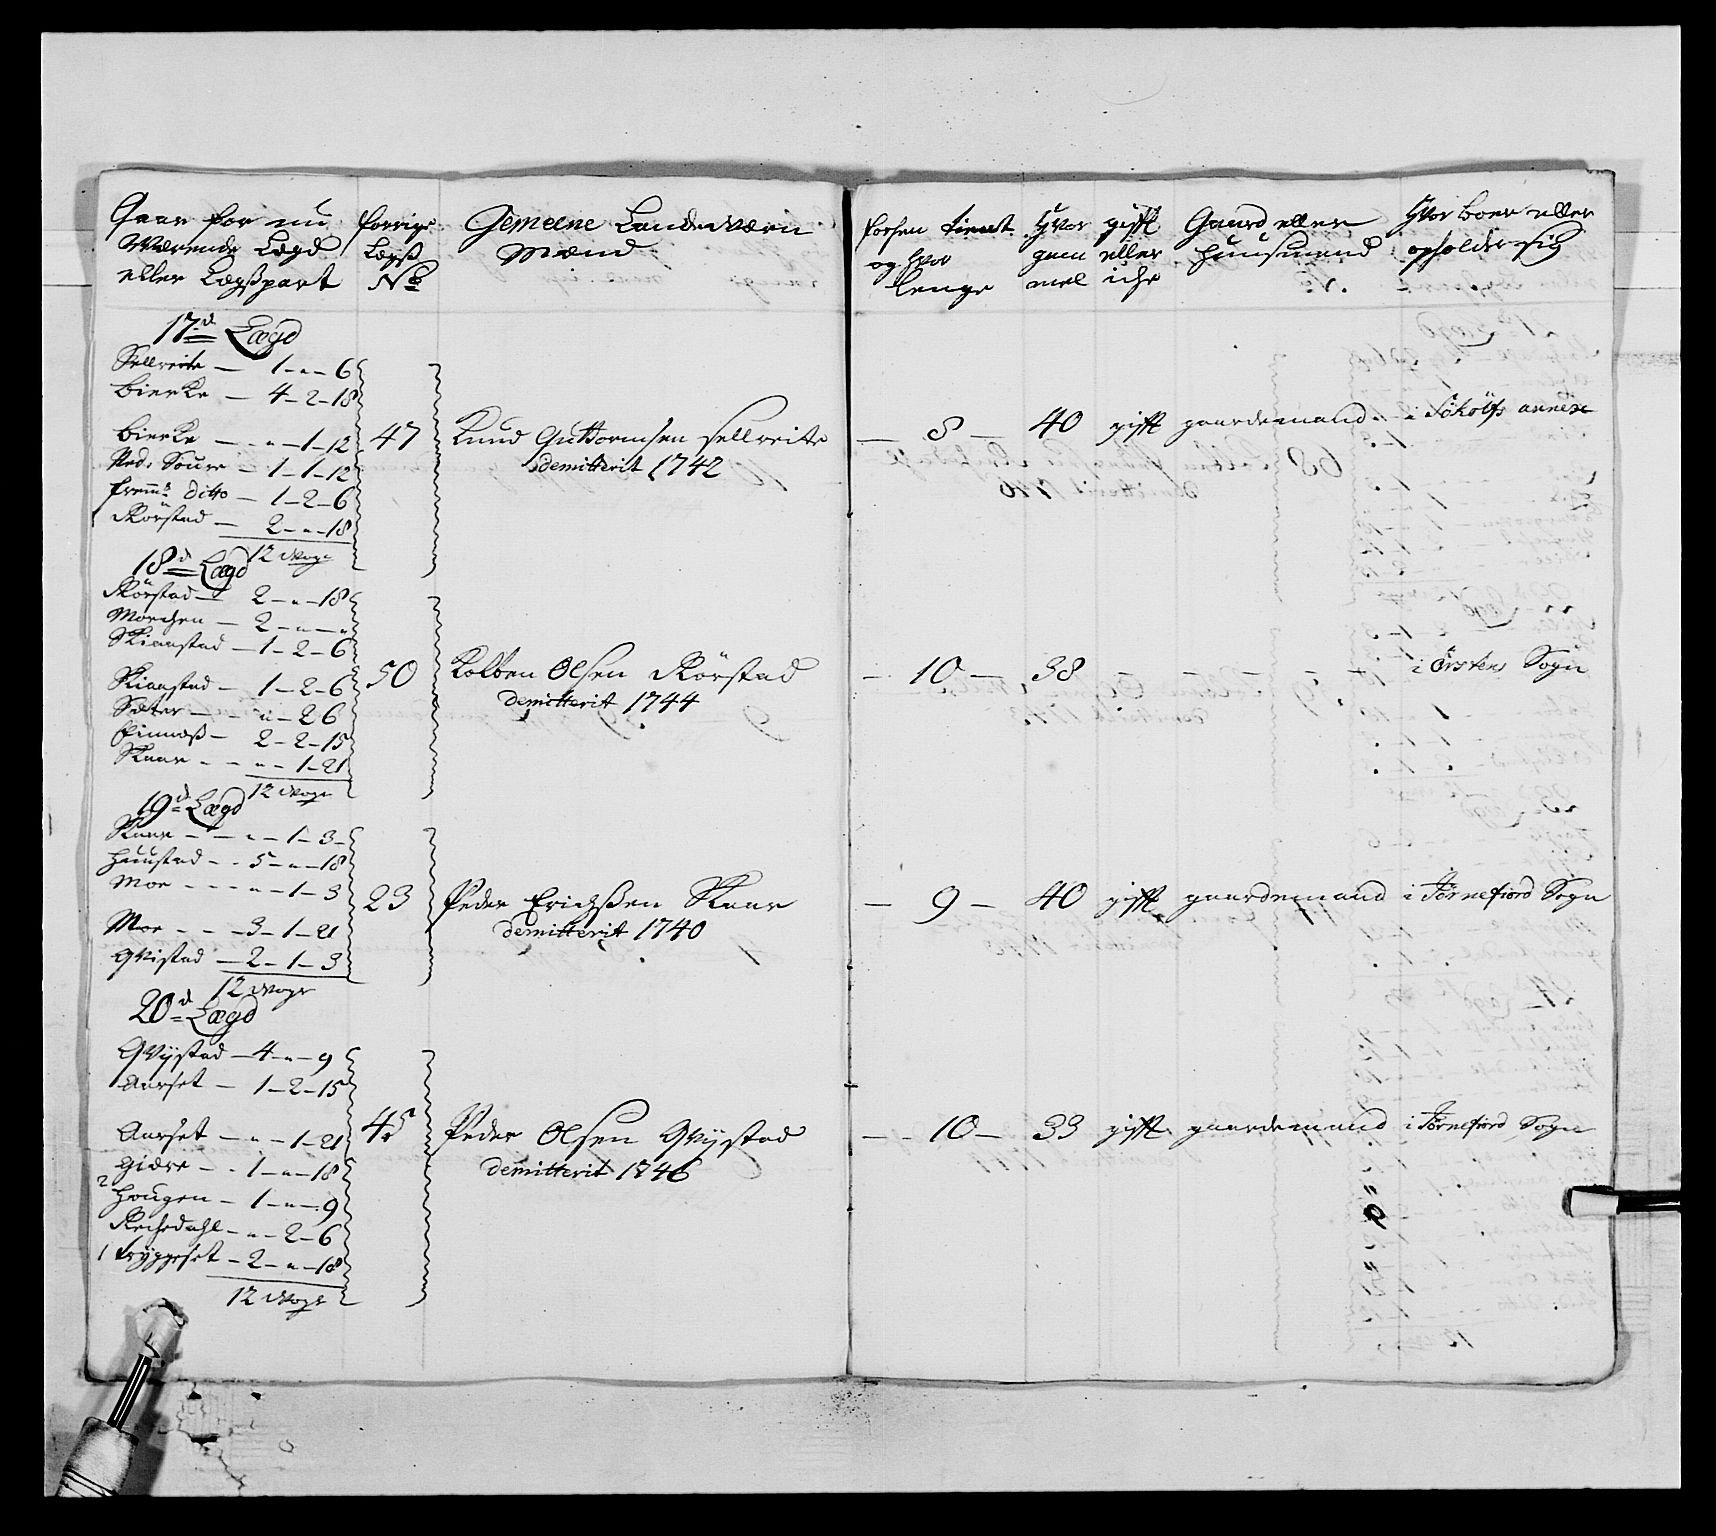 Gaar for nu
Værende Lægd
eller Lægßpart
forrige
Lægß
No
Gemeene Landeværn
Mænd
forhen tient
og hvor
lenge
Hvor
gam
mel
gifft
eller
iche
Gaard eller
Huusmand
Hvor boer eller
opholder sig
17d Lægd
Sellreite — 1-"-6
Bierke — 4-2-18
Bierke — "-1-12
Ned. Soure — 1-1-12
fremm. ditto — 1-2-6
Rörstad — 2-"-18
12 Woge
47
Knud Guttormsen Sellreite
demitterit 1742
— 8 — 40 gifft gaardemand i annexe
18d Lægd
Rörstad — 2-"-18
Morchen — 2-"-"
Skianstad — 1-2-6
Skianstad — 1-2-6
Sæter — "-2 6
Finnæß — 2-2-15
Skaar - - "-1-21
12 Woge
50
Kolben Olsen Rörstad
demitterit 1744
— 10 — 38 - - - - i Örstens Sogn
19d Lægd
Skaar - - "-1-3
Hunstad - - 5-"-18
Moe - - - "-1-3
Moe - - - 3-1-21
Qvistad — 2-1-3
12 Woge
23
Peder Erichßen Skaar
demitterit 1740
— 9 — 40 gifft gaardemand i Törnefiord Sogn
20d Lægd
Qvÿstad — 4-"-9
Aarset — 1-2-15
Aarset — "-1-21
Giære - - 1-"-18
2 Hougen — 1-"-9
Rechedahl — "-2-6
1 Trÿggeset — 2-"-18
12 Woge
45
Peder Olsen Qvÿstad
demitterit 1746
— 10 — 33 gifft gaardemand i Törnefiord Sogn